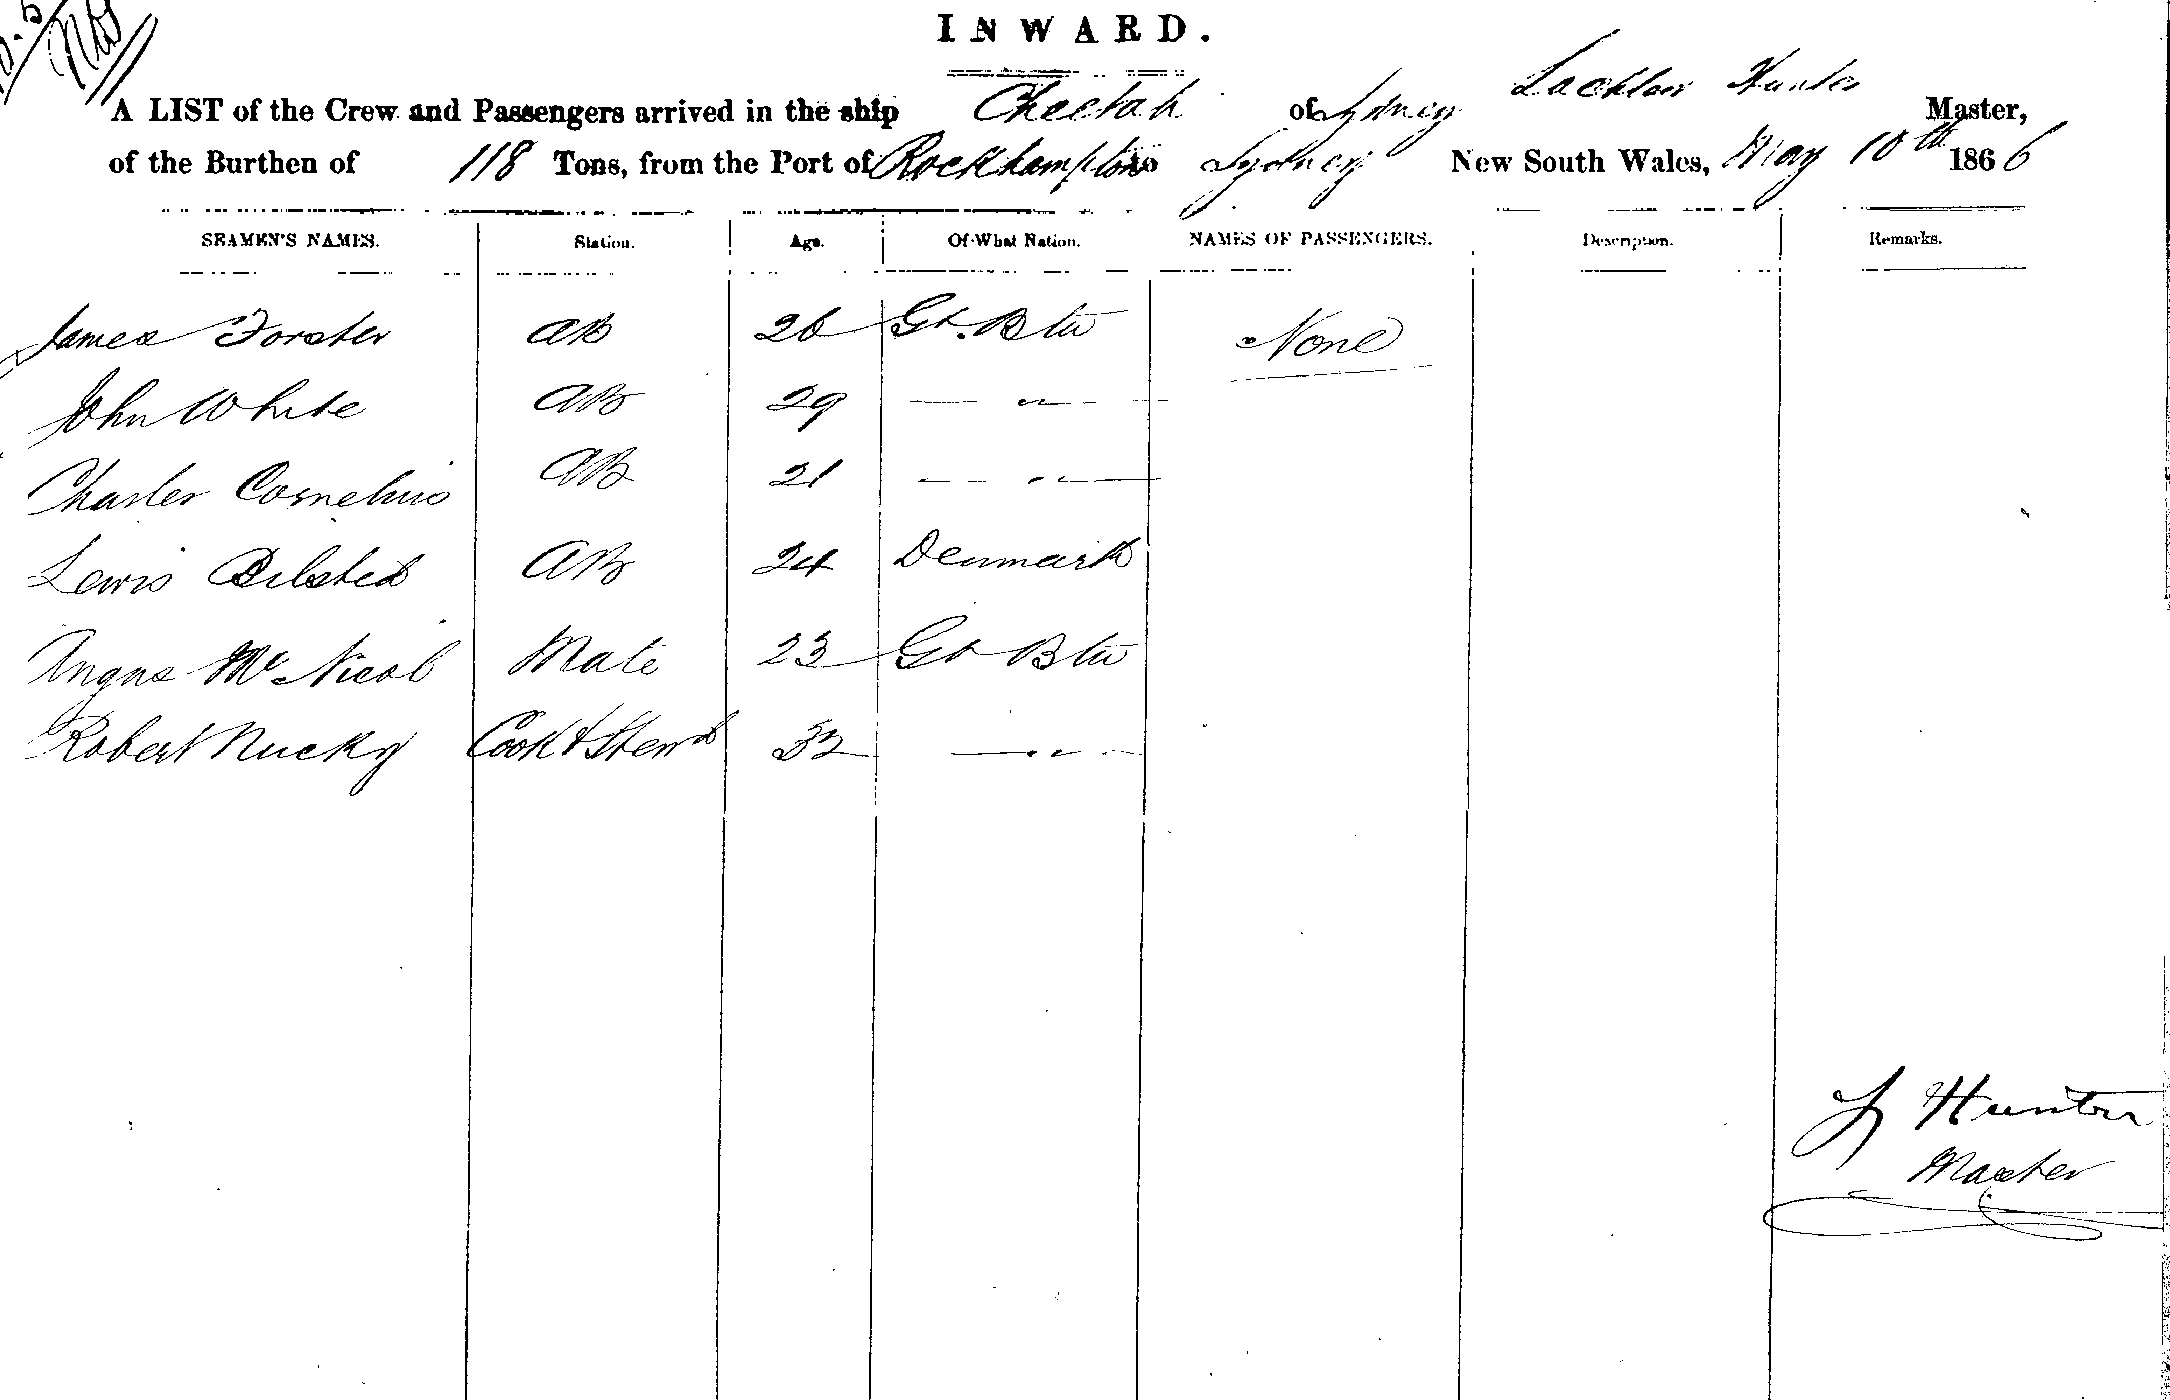 INWARD.
A LIST of the Crew and Passengers arrived in the ship Cheetah of Sydney Lachlan Hunter Master,
of the Burthen of 118 Tons, from the Port of Rockhampton to Sydney New South Wales, May 10th 1866
SEAMEN'S NAMES. Station. Age. Of What Nation. NAMES OF PASSENGERS. Description. Remarks.
James Forster AB 26 Gt. Btn None
John White AB 29 — " —
Charles Cornelius AB 21 — " —
Lewis AB 24 Denmark
Angus McNicol Mate 23 Gt Btn
Robert Nucky Cook & Stewd 32 — " —
L Hunter
Master